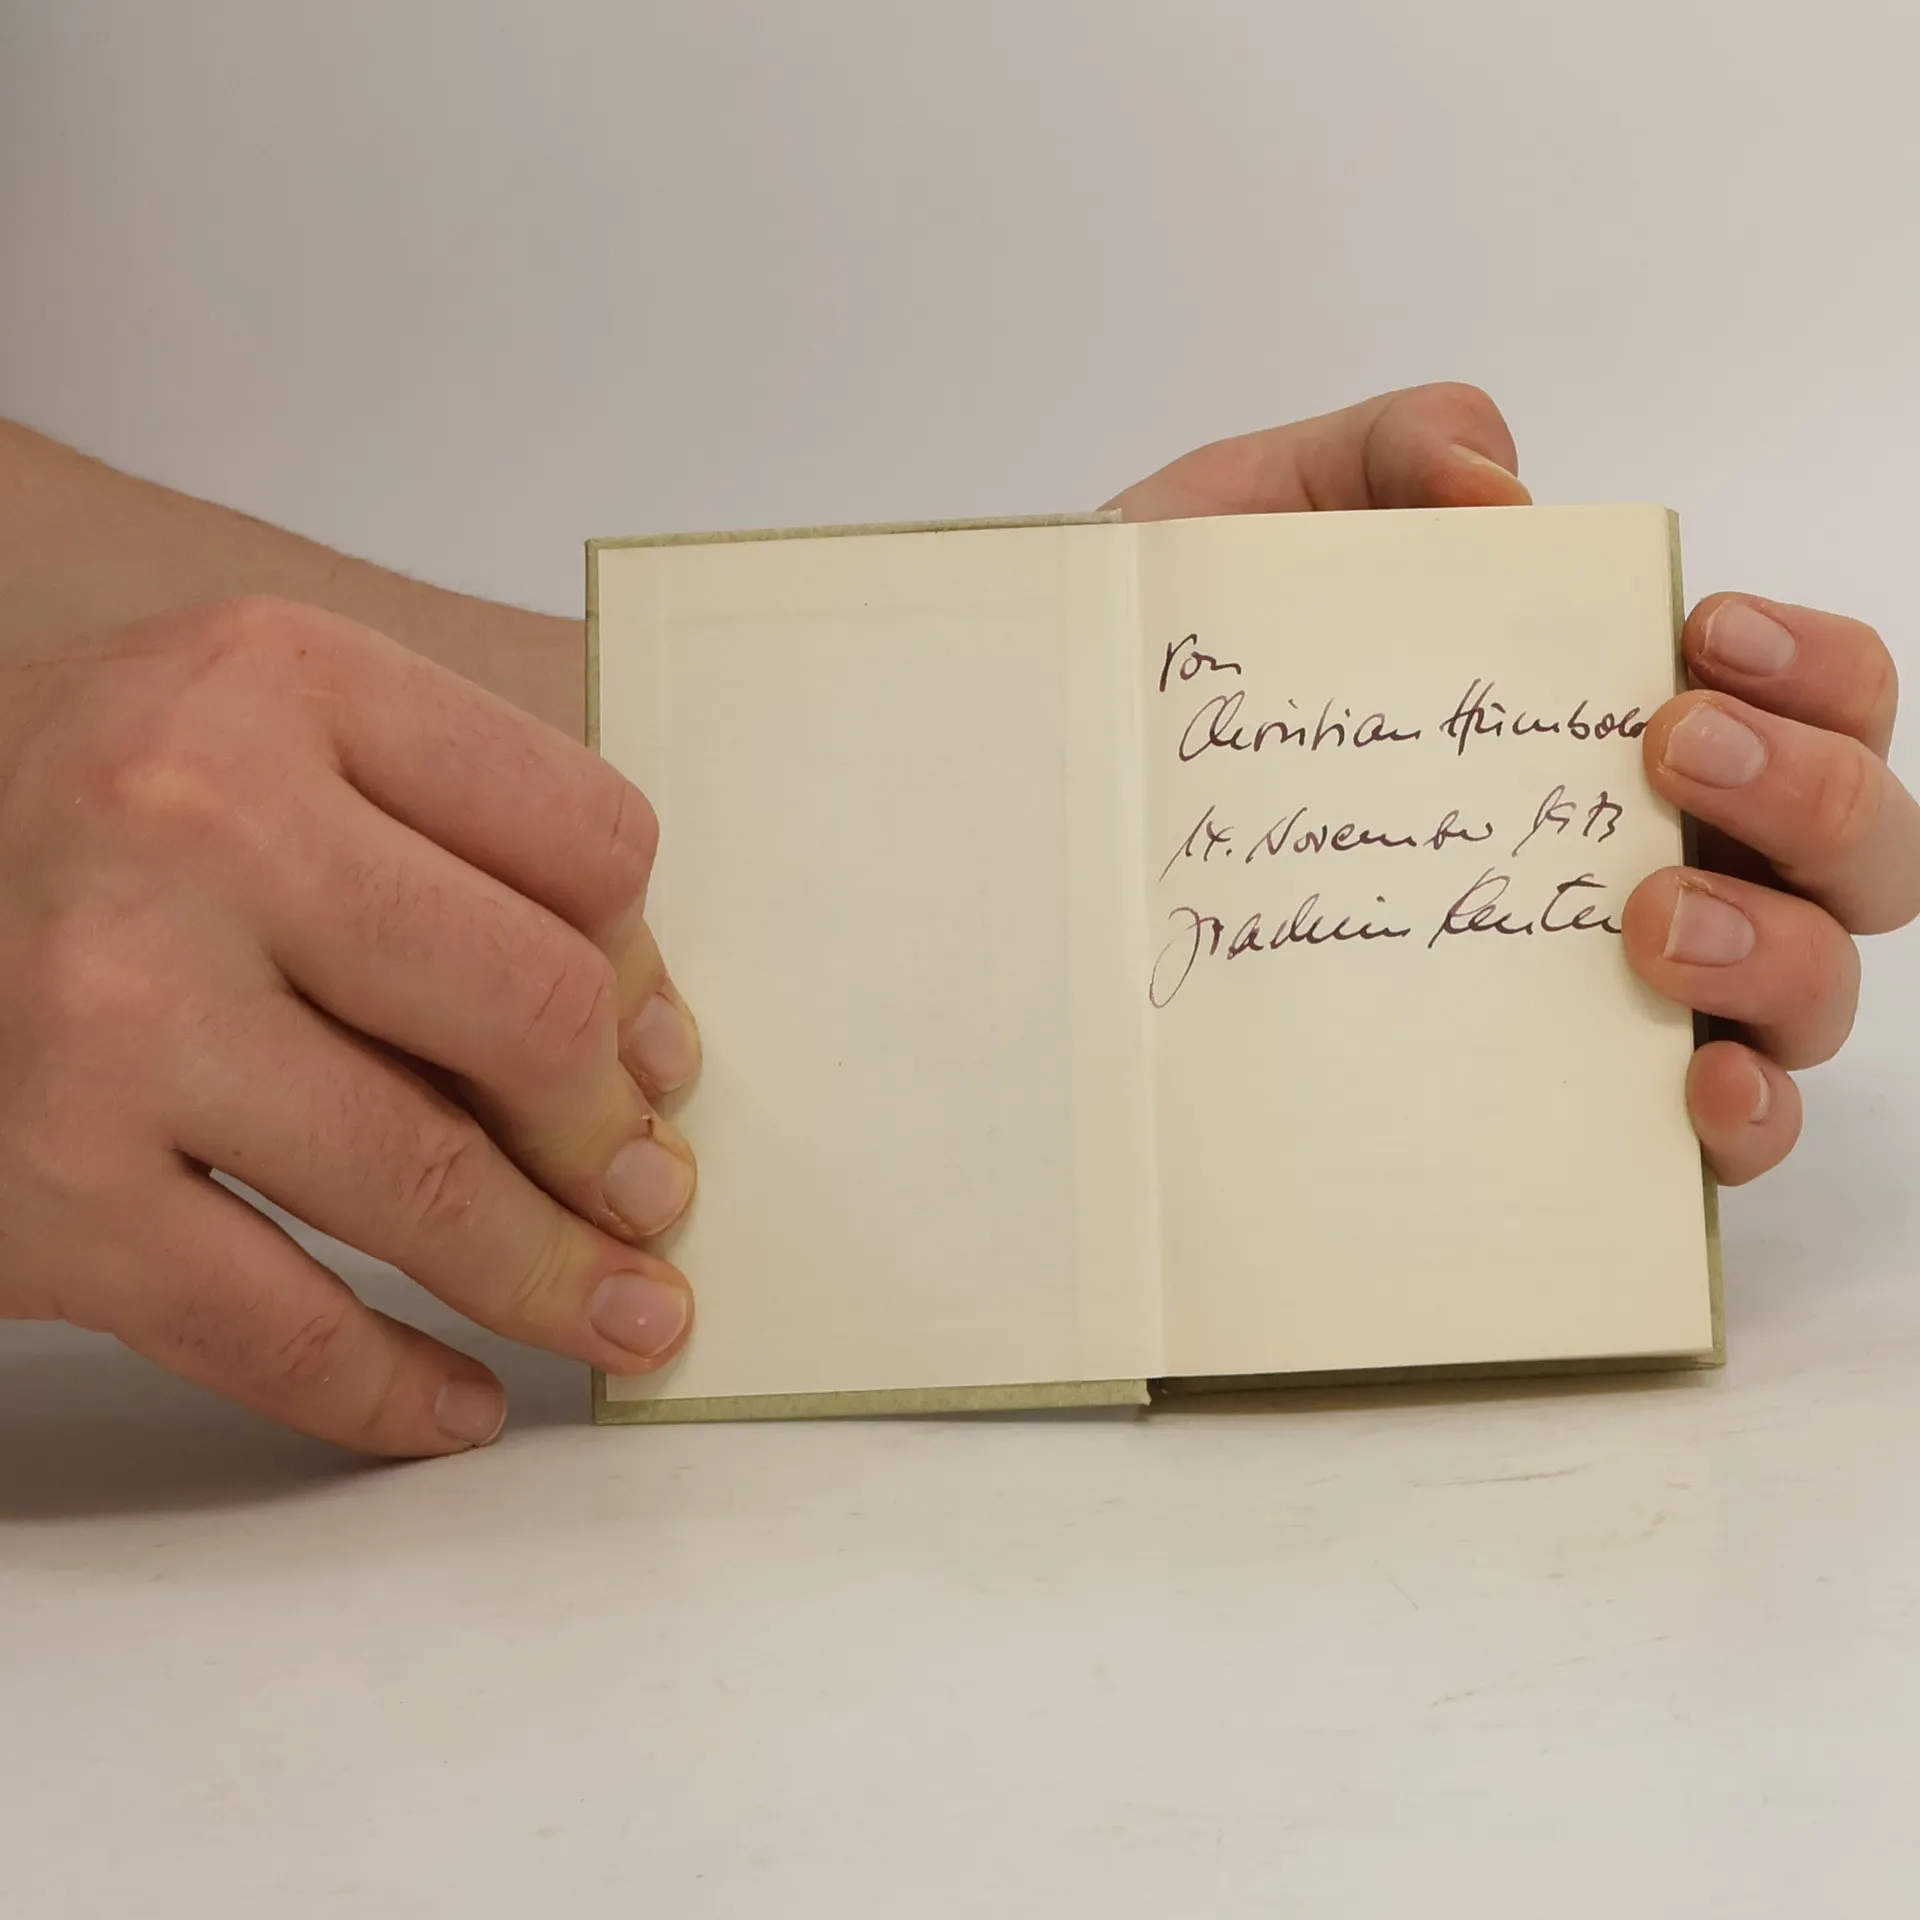 Von
Christian Humbold
14. November 1973
Joachim Reuter